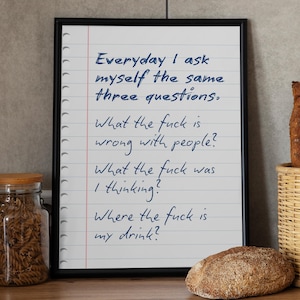 Everyday I ask
myself the same
three questions.
What the fuck is
wrong with people?
What the fuck was
I thinking?
Where the fuck is
my drink?